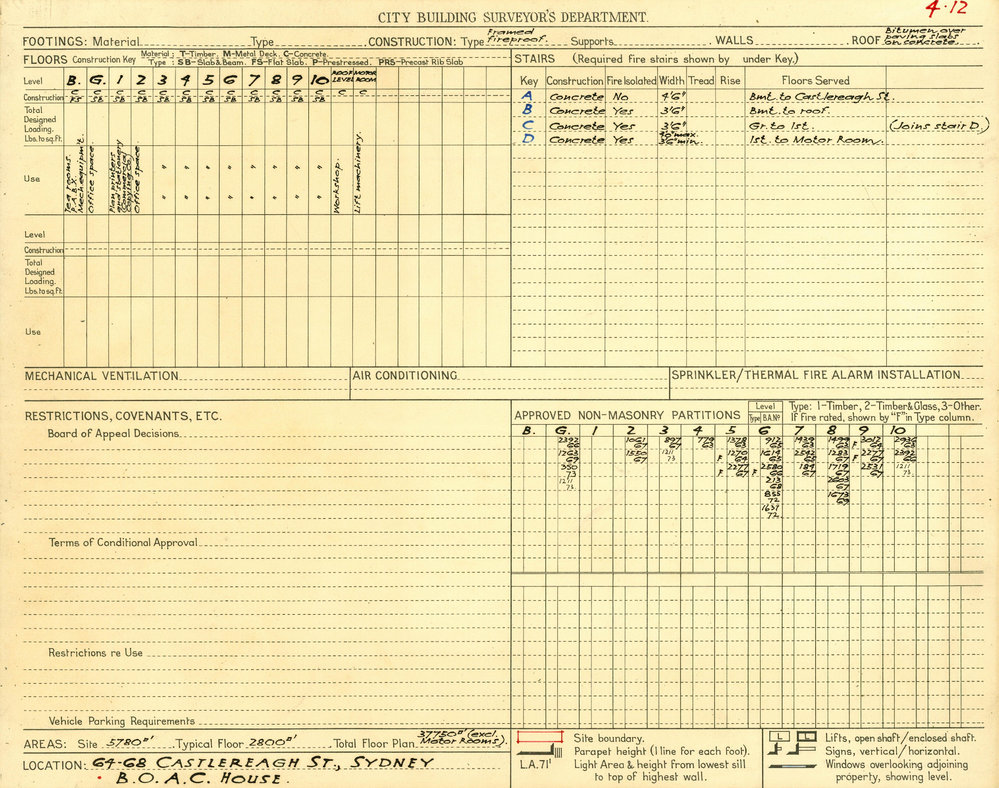 4·12
CITY BUILDING SURVEYOR'S DEPARTMENT.
FOOTINGS: Material Type CONSTRUCTION: Type Framed fireproof. Supports WALLS ROOF Bitumen over paving slabs on concrete.
FLOORS Construction Key Material: T-Timber, M-Metal Deck, C-Concrete.
Type: SB-Slab&Beam. FS-Flat Slab. P-Prestressed. PRS-Precast Rib Slab
Level B. G. 1 2 3 4 5 6 7 8 9 10 ROOF LEVEL MOTOR ROOM
Construction C C C C C C C C C C C C C C
FS SB SB SB SB SB SB SB SB SB SB SB
Total
Designed
Loading.
Lbs. to sq. ft.
Use
Tea rooms.
P.A.B.X.
Mech. equipm't.
Office space.
Plan printers
and stationery
(Commercial
Copying Co.)
Office space.
" " " " " " " "
" " " " " " " "
Workshop.
Lift machinery.
Level
Construction
Total
Designed
Loading.
Lbs. to sq. ft.
Use
STAIRS (Required fire stairs shown by under Key.)
Key Construction Fire Isolated Width Tread Rise Floors Served
A Concrete No 4'6" Bmt. to Castlereagh St.
B Concrete Yes 3'6" Bmt. to roof.
C Concrete Yes 3'6" Gr. to 1st. (Joins stair D.)
D Concrete Yes 4'0" max. 3'6" min. 1st. to Motor Room.
MECHANICAL VENTILATION
AIR CONDITIONING
SPRINKLER/THERMAL FIRE ALARM INSTALLATION
RESTRICTIONS, COVENANTS, ETC.
Board of Appeal Decisions
Terms of Conditional Approval
Restrictions re Use
Vehicle Parking Requirements
APPROVED NON-MASONRY PARTITIONS
Level
Type B.A.No
Type: 1-Timber, 2-Timber & Glass, 3-Other.
If fire rated, shown by "F" in Type column.
B. G. 1 2 3 4 5 6 7 8 9 10
2392 1061 897 779 1378 912 1439 1499 F 3017 2936
66 67 67 63 63 63 63 63 64 63
1263 1550 1211 1270 1614 2542 1283 2277 2392
67 67 73 F 64 65 65 67 F 67 66
350 2277 2580 184 1719 2531 1211
73 F 67 F 66 67 67 67 73
1211 213 2603
73 68 67
855 1673
72 69
1637
72
AREAS: Site 5780□' Typical Floor 2800□' Total Floor Plan 37750□' (excl. Motor Rooms).
LOCATION: 64-68 CASTLEREAGH ST., SYDNEY
B.O.A.C. HOUSE.
Site boundary.
Parapet height (1 line for each foot).
L.A.71' Light Area & height from lowest sill
to top of highest wall.
L L Lifts, open shaft/enclosed shaft.
Signs, vertical/horizontal.
Windows overlooking adjoining
property, showing level.